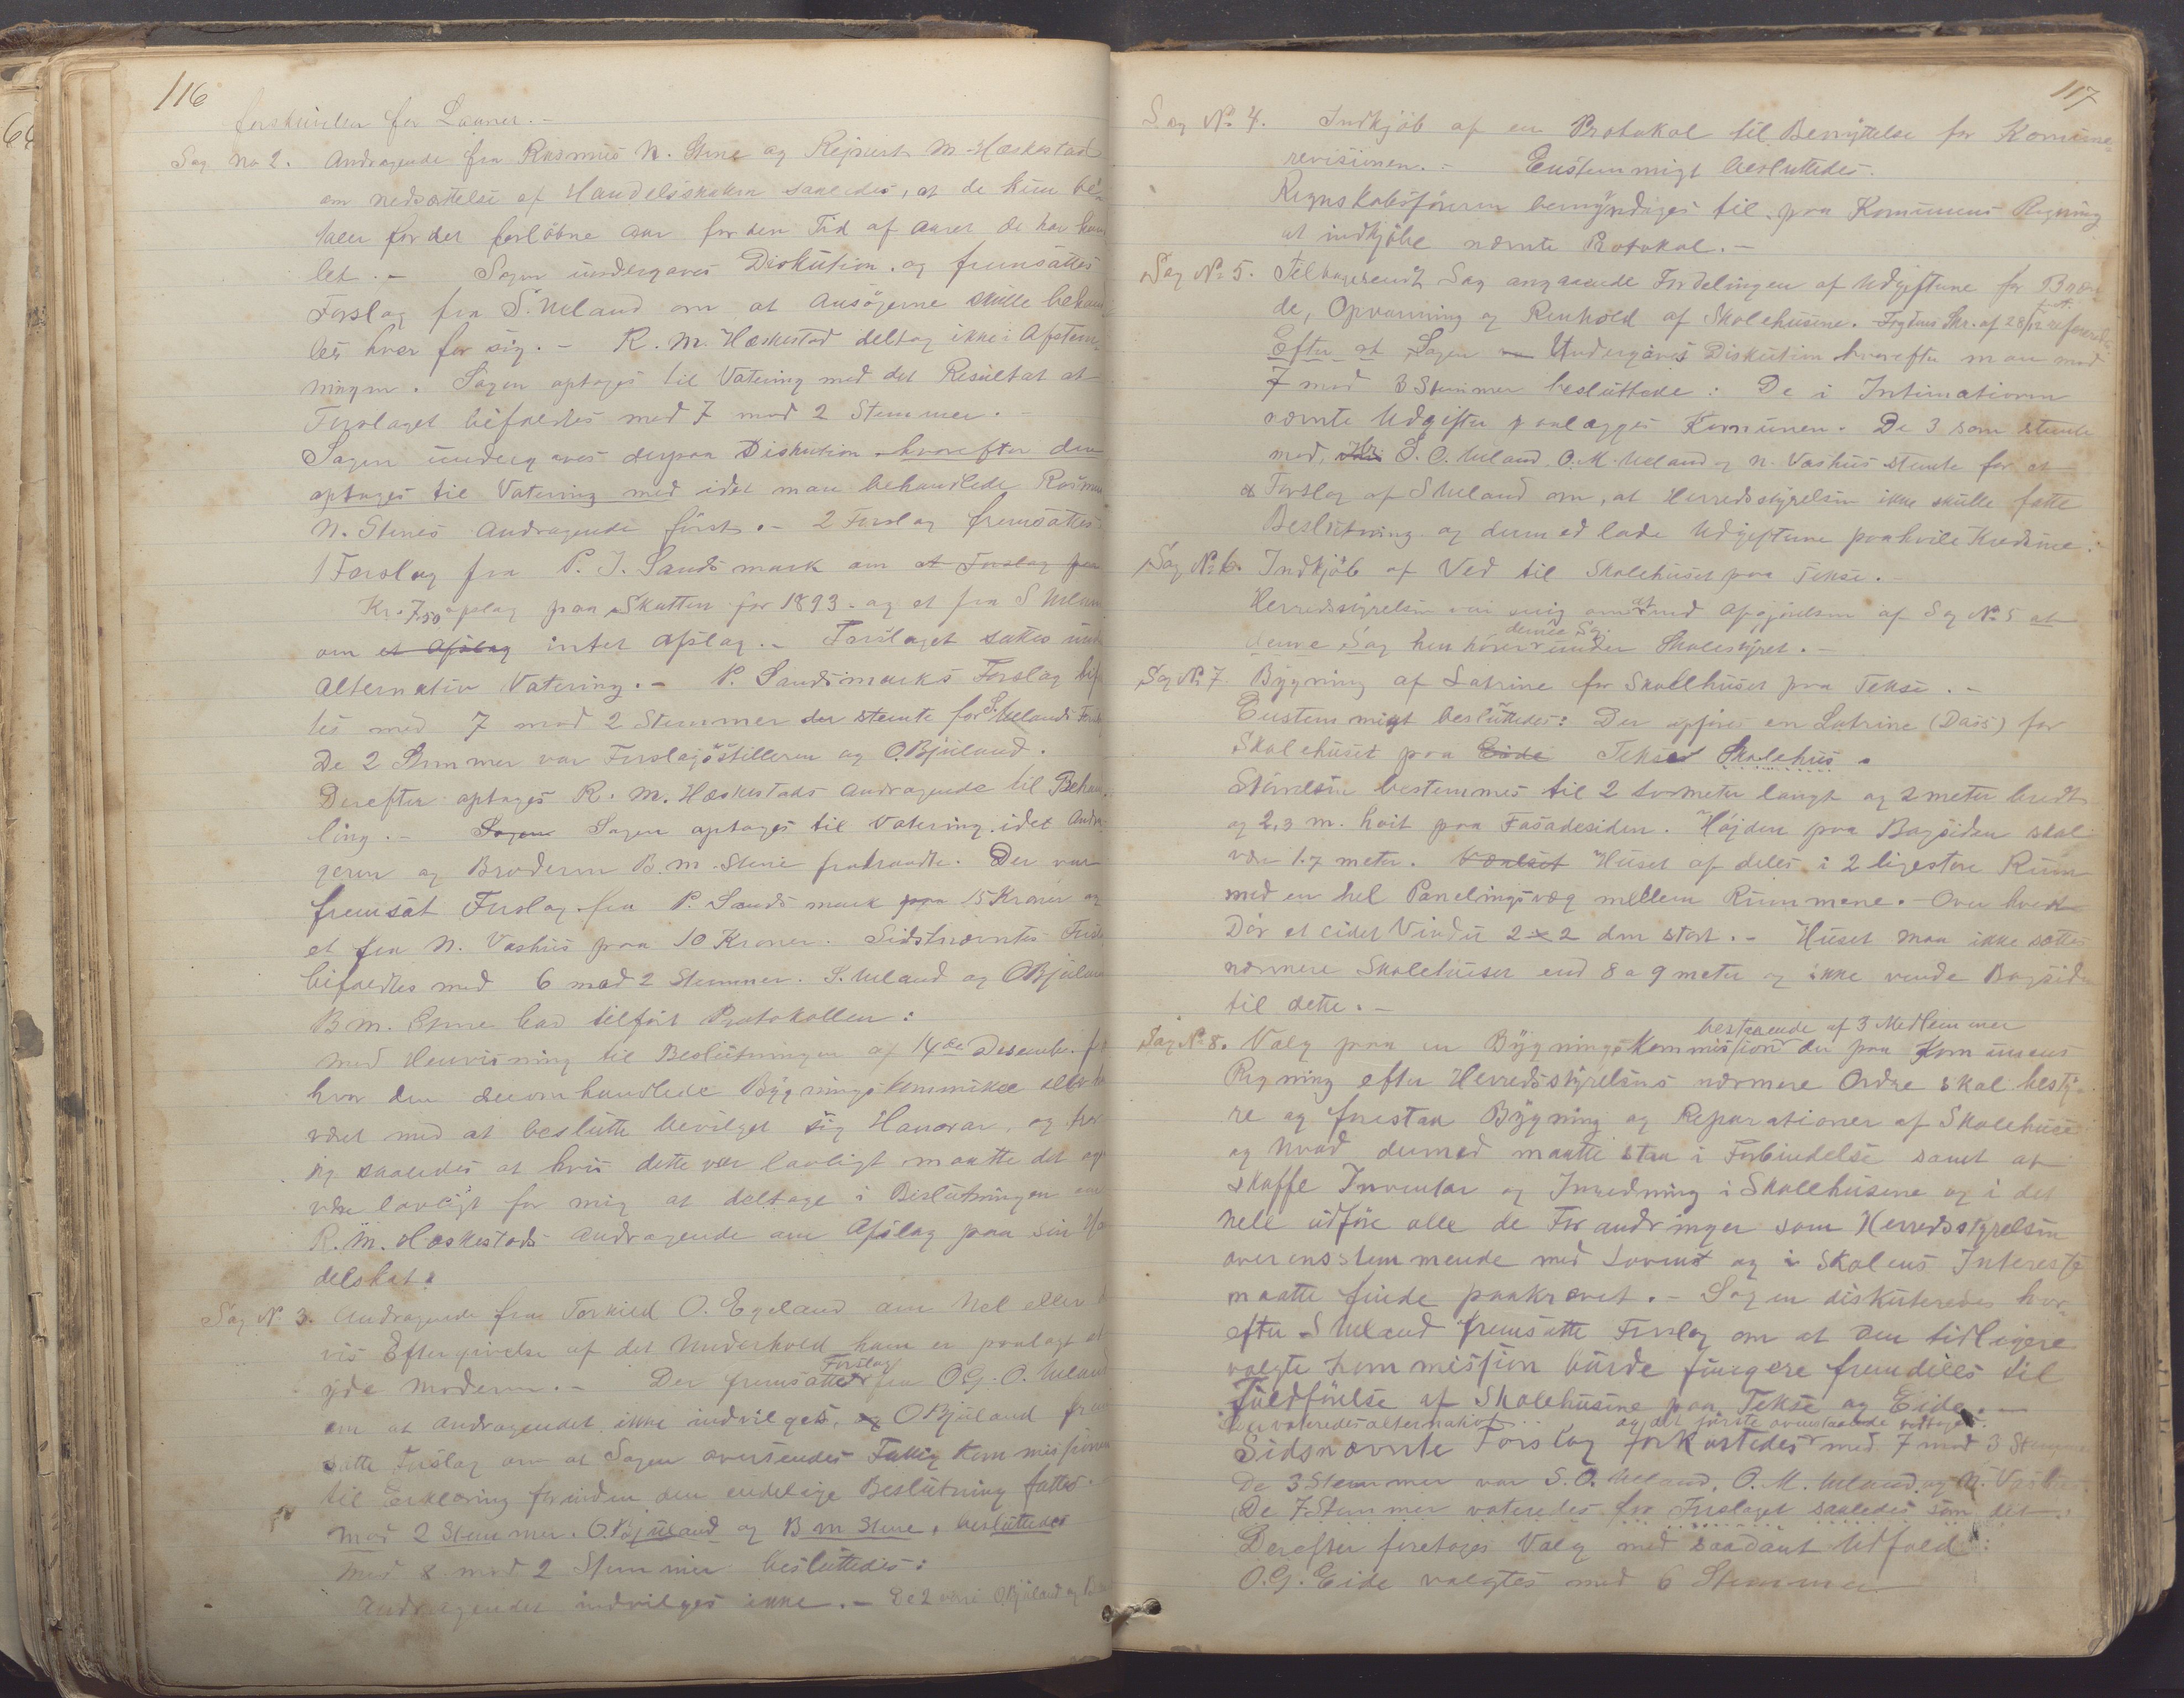 116
forskuden for Laaner. –
Sag No 2. Andragende fra Rasmus N. Stene og Rejnert M. Hæskestad
om nedsættelse af Handelsskaten saaledes, at de kun be-
taler for det forløbne Aar for den Tid af aaret de har han
let. – Sagen undergaves Diskution. og fremsattes
Forslag fra S. Ueland om at Ansøgerne skulle behand
les hver for sig. – R. M. Hæskestad deltog ikke i Afstem-
ningen. Sagen optoges til Votering med det Resultat at
Forslaget bifaldtes med 7 mod 2 Stemmer. –
Sagen undergaves derpaa Diskution hvorefter den
optoges til Votering med idet man behandlede Rasmus
N. Stenes Andragende først. – 2 Forslag fremsattes
1 Forslag fra P. J. Sandsmark om at Forslag paa
Kr. 7.50 afslag paa Skatten for 1893. og et fra S Uelan
om et Afslag intet Afslag. – Forslaget sattes und
Alternativ Votering. – P. Sandsmarks Forslag bif
tes med 7 mod 2 Stemmer der stemte for S. Uelands Forsl
De 2 Stemmer var Forslagsstilleren og O. Bjuland.
Derefter optoges R. M. Hæskestads Andragende til Behan
ling. – Sagen Sagen optoges til Votering idet Andra-
geren og Broderen B. M. Stene fratraadte. Der var
fremsat Forslag fra P. Sandsmark paa 15 Kroner og
et fra N. Vashus paa 10 Kroner. Sidstnævntes Forsl
bifaldtes med 6 mod 2 Stemmer. S. Ueland og O Bjulan
B M. Stene bad tilført Protokollen:
Med Henvisning til Beslutningen af 14de Desember
hvor den deromhandlede Bygningskommike
været med at beslutte bevilget sig Honorar, og
jeg saaledes at hvis dette var lovligt maatte det og
være lovligt for mig at deltage i Beslutningen
R. M. Hæskestads Andragende om Afslag paa sin
delskat.
Sag N. 3. Andragende fra Torkild O. Egeland om Hel eller
vis Eftergivelse af det Underhold ham er paalagt at
yde Moderen. – Der fremsattes Forslag fra O. G. O. Ueland
om at Andragendet ikke indvilges, og O Bjuland frem
satte Forslag om at Sagen oversendes Fattigkommissionen
til Erklæring forinden den endelige Beslutning fattes.
Mod 2 Stemmer. O. Bjuland og B M Stene, besluttedes
Med 8 mod 2 Stemmer besluttedes:
Andragendet indvilges ikke. – De 2 vare O. Bjuland og
117
Sag No 4. Indkjøb af en Protokol til Benyttelse for Komune-
revisionen. – Enstemmigt besluttedes.
Regnskabsføreren bemyndiges til paa Komunens Regning
at indkjøbe nævnte Protokol. –
Sag No 5. Tilbagesendt Sag angaaende Fordelingen af Udgifterne for Bræn
de, Opvarming og Renhold af Skolehusene. Fogdens Skr. af 28/12 refererte
Efter at Sagen var Undergaves Diskution hvorefter man med
7 mod 3 Stemmer besluttede: De i Intimationen
nævnte Udgifter paalægges Komunen. De 3 som stemte
mod, S. O. Ueland, O. M. Ueland og N. Vashus stemte for et
Forslag af S Ueland om, at Herredsstyrelsen ikke skulle fatte
Beslutning og dermed lade Udgifterne paahvile Kredsene.
Sag No 6. Indkjøb af Ved til Skolehuset paa Tekse. –
Herredsstyrelsen var enig om at med Afgjørelsen af Sag No 5 at
denne Sag henhører denne Sag under Skolestyret. –
Sag No 7. Bygning af Latrine for Skolehuset paa Tekse. –
Enstemmigt besluttedes: Der opføres en Latrine (Dass) for
Skolehuset paa Eide Tekse Skolehus.
Størrelsen bestemmes til 2 meter langt og 2 meter bredt
og 2,3 m. høit paa Fasadesiden. Højden paa Bagsiden skal
være 1.7 meter. Huset afdeles i 2 ligestore Rum
med en hel Panelingsvæg mellem Rummene. – Over hver
Dør et lidet Vindu 2 x 2 dm stort. – Huset maa ikke sættes
nærmere Skolehuset end 8 a 9 meter og ikke vende Bagsiden
til dette. –
Sag No 8. Valg paa en Bygningskommission bestaaende af 3 Medlemmer der paa Komunens
Regning efter Herredsstyrelsens nærmere Ordre skal besty-
re og forestaa Bygning og Reparationer af Skolehuse
og hvad dermed maatte staa i Forbindelse samt at
skaffe Inventar og Inredning i Skolehusene og i det
hele udføre alle de Forandringer som Herredsstyrelsen
overensstemmende med Loven og i Skolens Interesse
maatte finde paakrævet. – Sagen diskuteredes hvor-
efter S Ueland fremsatte Forslag om at den tidligere
valgte Kommission burde fungere fremdeles til
Fuldførelse af Skolehusene paa Tekse og Eide. –
Der voteredes alternativt og det første ovenstaaende vedtoges.
Sidsnævnte Forslag forkastedes med 7 mod 3 Stemmer
De 3 Stemmer var S. O. Ueland, O. M. Ueland og N. Vashus.
De 7 Stemmer voteredes for Forslaget saaledes som det.
Derefter foretoges Valg med saadant Udfald:
O. G. Eide valgtes med 6 Stemmer